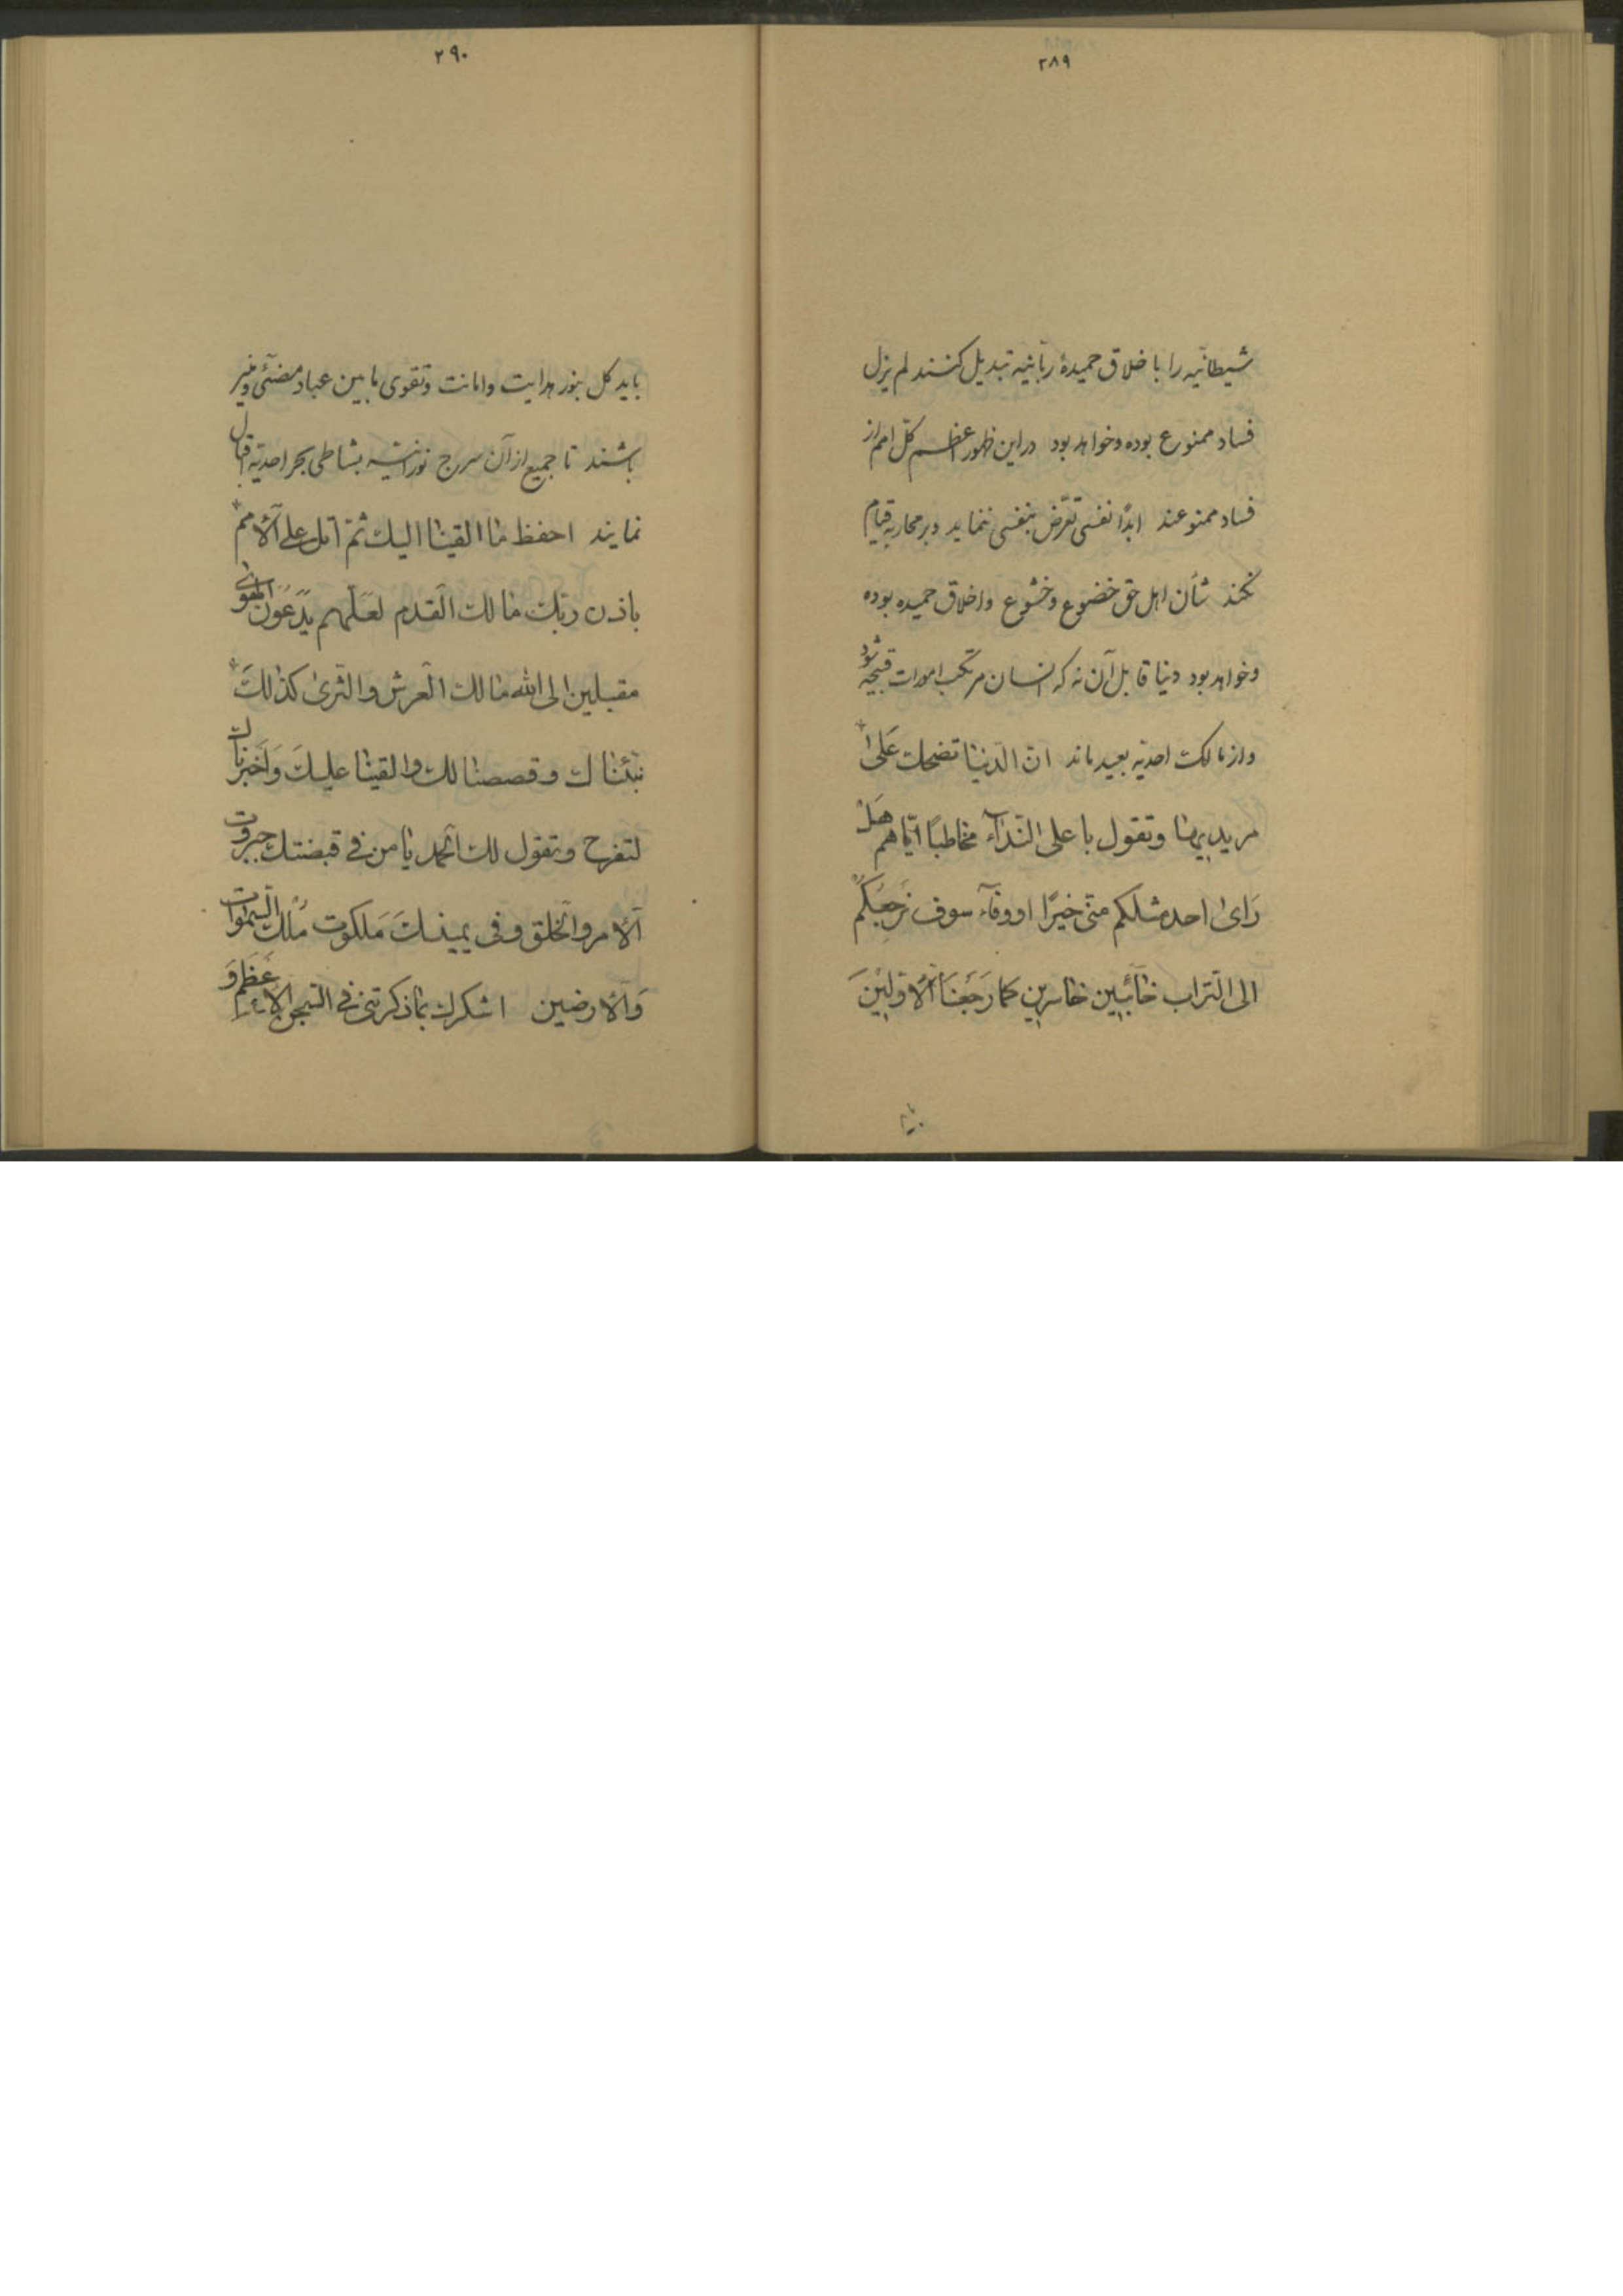 ٢٨٩
شیطانیّه را باخلاق حمیدهٔ ربّانیّه تبدیل کنند لم یزل
فساد ممنوع بوده و خواهد بود در این ظهور اعظم کلّ امم از
فساد ممنوعند ابدًا نفسی تعرّض بنفسی ننماید و بر محاربه قیام
نکند شأن اهل حق خضوع و خشوع و اخلاق حمیده بوده
و خواهد بود دنیا قابل آن نه که انسان مرتکب امورات قبیحه شود
و از مالک احدیّه بعید ماند انّ الدّنیا تضحك عَلیٰ
مریدیها وتقول باعلی النّدآء مخاطبًا ایّاهم هَلْ
رَایٰ احد مثلکم منّی خیرًا او وفآء سوف نُرجِعُکُمْ
الی التّراب خآئبین خاسرین کما رَجَعْنَا الْأوّلینَ
٢٩٠
باید کل بنور هدایت و امانت و تقوی مابین عباد مضئی و منیر
باشند تا جمیع از آن سرج نورانیّه بشاطی بحر احدیّه اقبال
نمایند احفظ ما القینا الیك ثمّ اتل علی الأمم
باذن ربّك مالك القدم لعلّهم یَدَعُونَ الهویٰ
مقبلین الی الله مالك العرش والثّریٰ کذٰلكَ
نبّئناك وقصصنا لك والقینا علیكَ وَاَخبرناك
لتفرح وتقول لك الحمد یا من فی قبضتك جبروت
الأمر والخلق وفی یمینكَ مَلکوت مُلك السّمٰوات
وَالأرضین اشکرك بما ذکرتنی فی السّجن الاعظم وَ